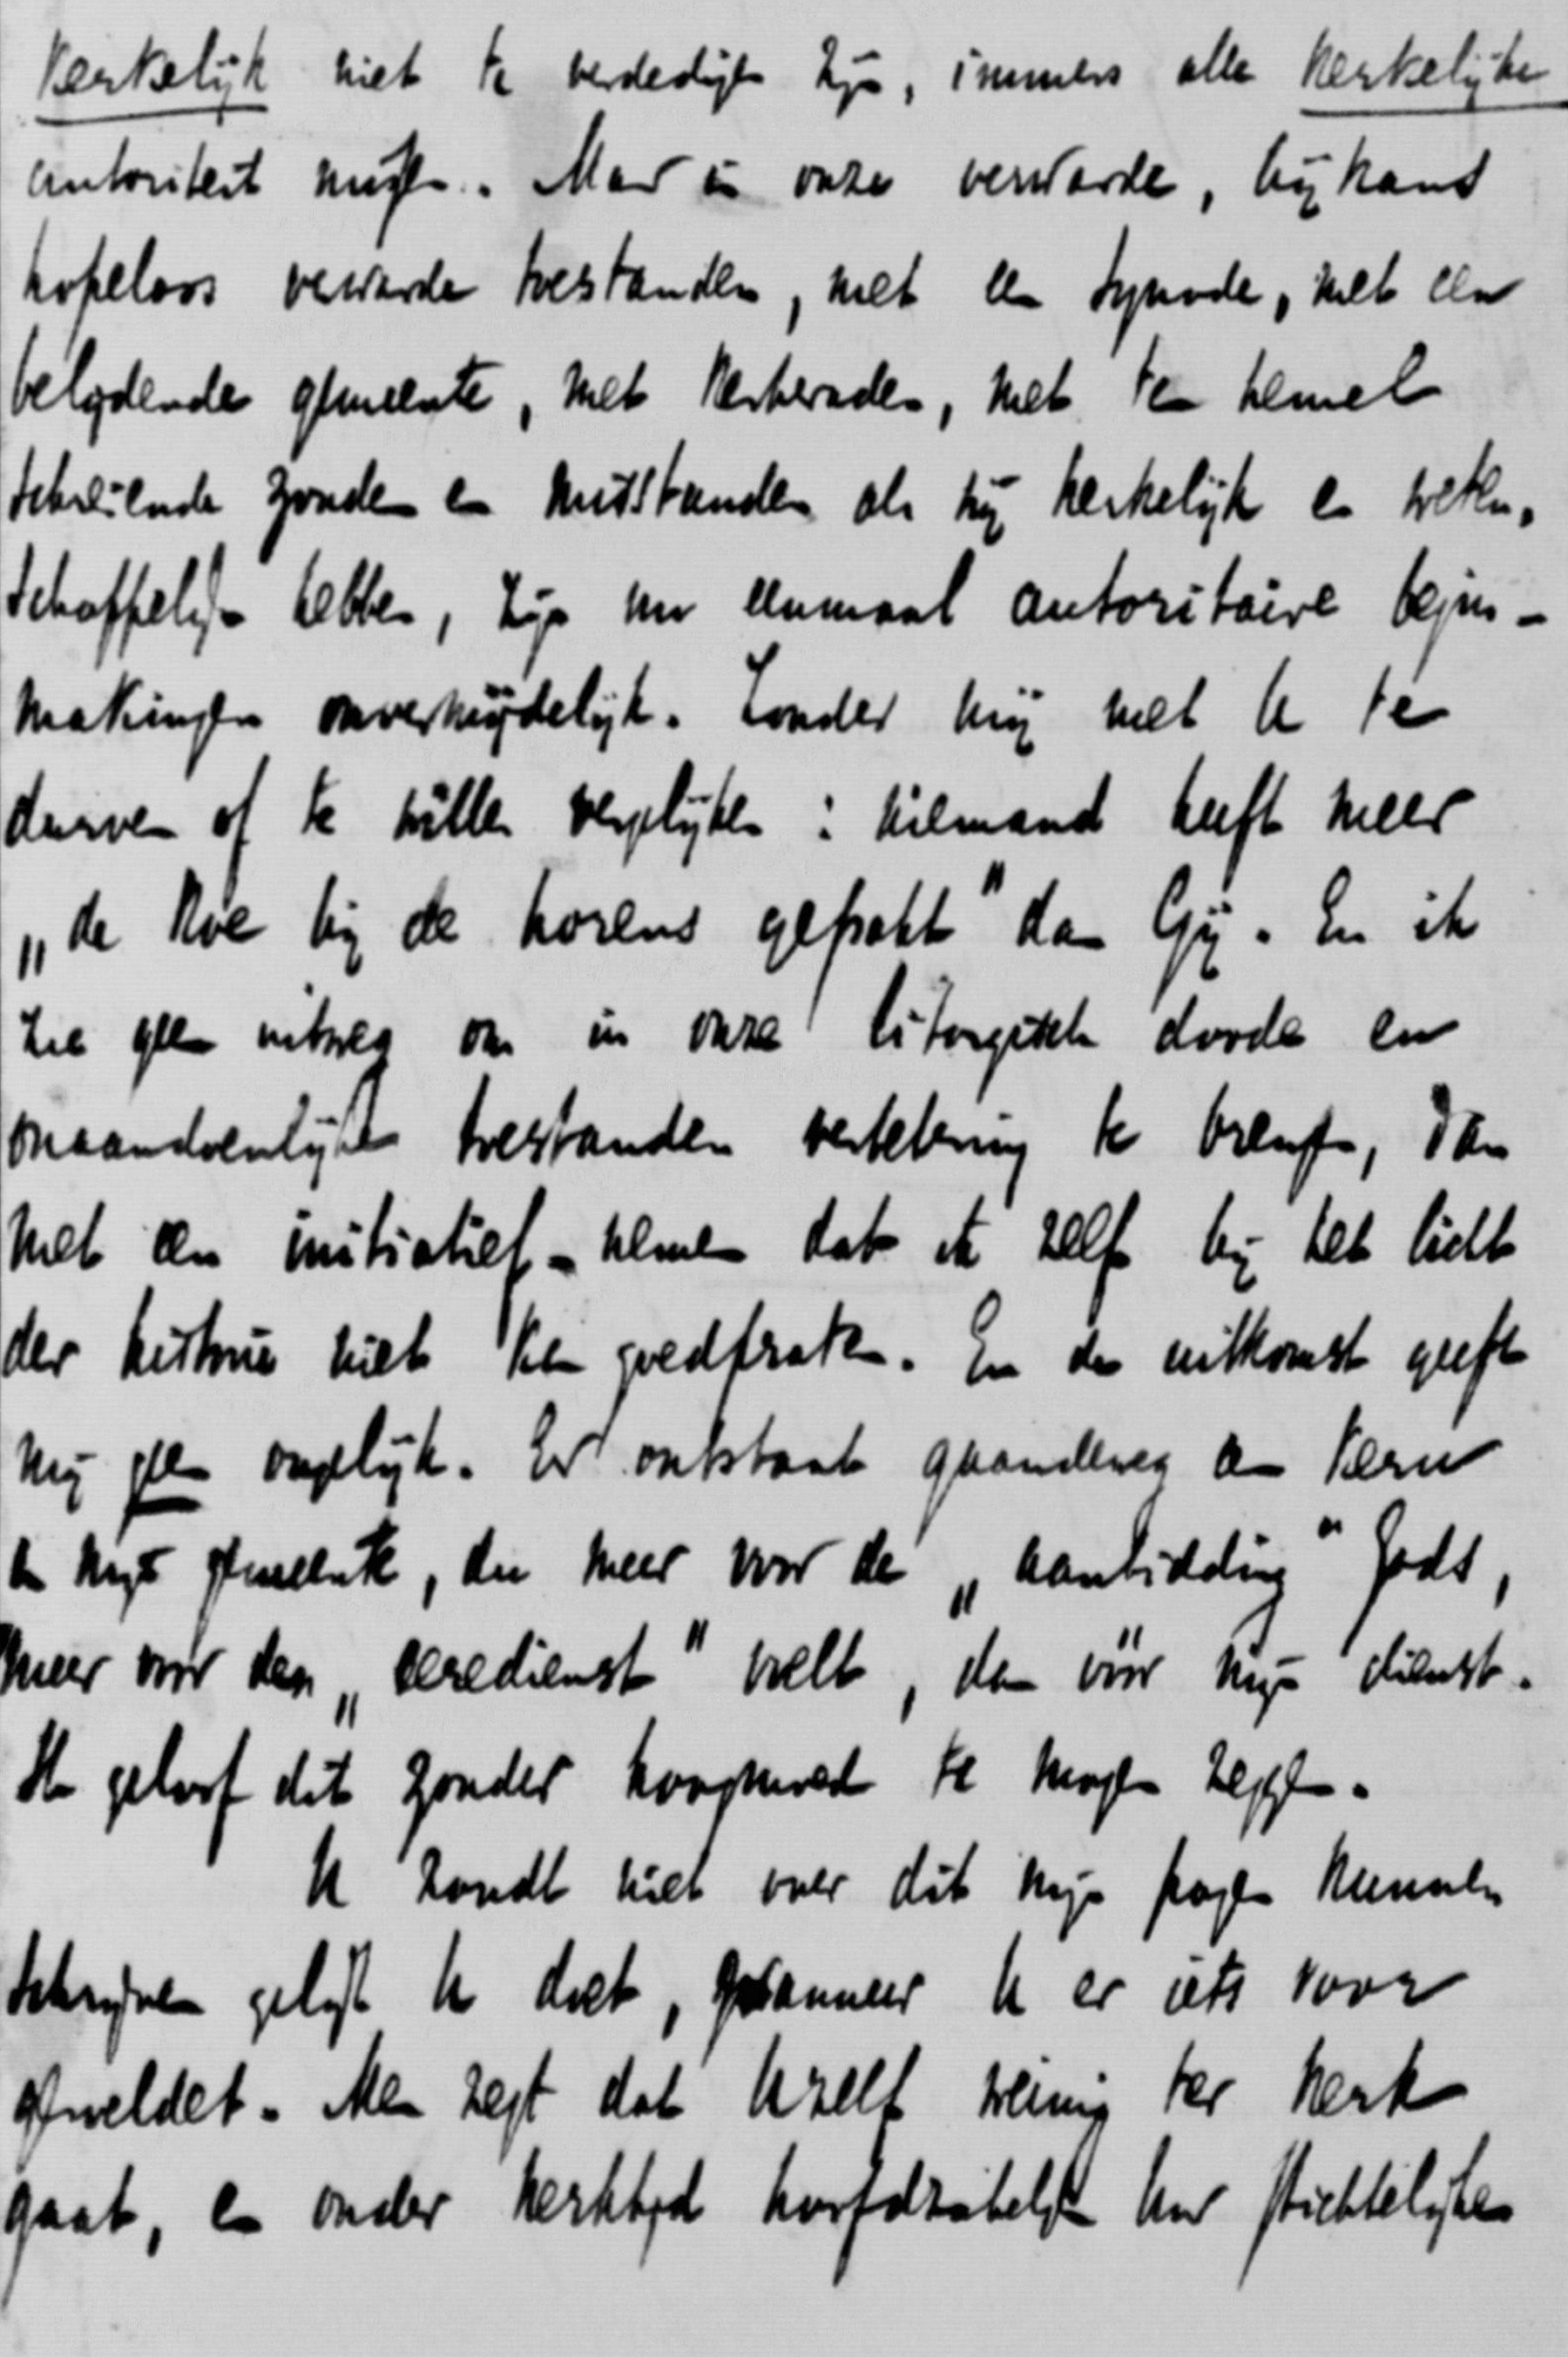 kerkelijk niet te verdedigen zijn, immers alle kerkelijke
autoriteit missen. Maar in onze verwarde, bijkans
hopeloos verwarde toestanden, met een synode, met een
belijdende gemeente, met kerkeraden, met ten hemel
schreiende zonden en misstanden als wij kerkelijk en weten-
schappelijk hebben, zijn nu eenmaal autoritaire bejin-
makingen onvermijdelijk. Zonder mij met U te
durven of te willen vergelijken: niemand heeft meer
„de koe bij de horens gepakt" dan Gij. En ik
zie geen uitweg om in onze liturgisch doode en
onaandoenlijke toestanden verbetering te brengen, dan
met een initiatief-nemen dat ik zelf bij het licht
der historie niet kan goedpraten. En de uitkomst geeft
mij geen ongelijk. Er ontstaat gaandeweg een kern
in mijn gemeente, die meer voor de „aanbidding" Gods,
meer voor den „eeredienst" voelt, dan vóór mijn dienst.
Ik geloof dit zonder hoogmoed te mogen zeggen.
U zoudt niet over dit mijn pogen kunnen
schrijven gelijk U doet, wanneer U er iets voor
gevoeldet. Men zegt dat U zelf weinig ter kerk
gaat, en onder kerktijd hoofdartikelen en stichtelijke